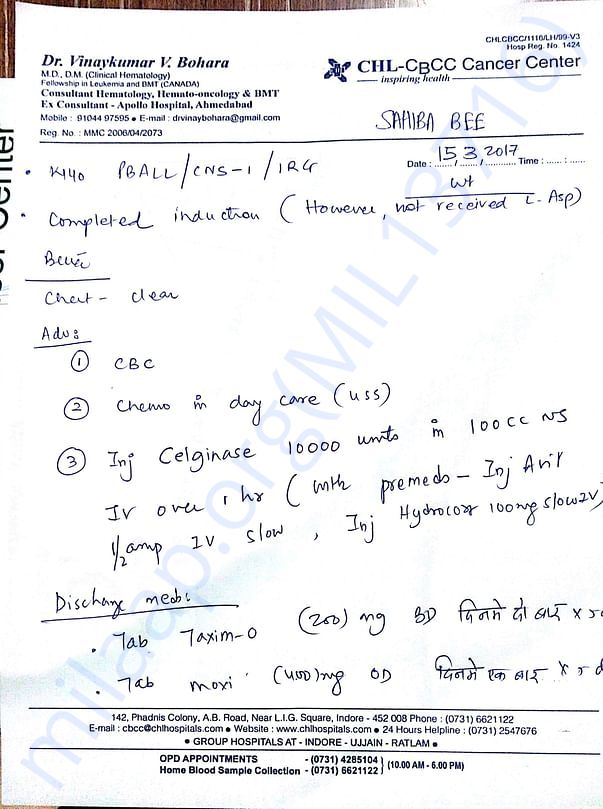 CHLCBCC/1116/LH/09-V3
Hosp Reg. No. 1424
Dr. Vinaykumar V. Bohara
M.D., D.M. (Clinical Hematology)
Fellowship in Leukemia and BMT (CANADA)
Consultant Hematology, Hemato-oncology & BMT
Ex Consultant - Apollo Hospital, Ahmedabad
Mobile : 91044 97595 ● E-mail : drvinaybohara@gmail.com
Reg. No. : MMC 2006/04/2073
CHL-CBCC Cancer Center
inspiring health
SAHIBA BEE
Date : 15/3/2017 Time :
wt
• K/40 PBALL/CNS-1/IRG
• Completed induction (However, not received L-Asp)
Chest - clear
Adv:
① CBC
② Chemo in day care (USS)
③ Inj Celginase 10000 units in 100CC NS
IV over 1 hr (with premeds - Inj Avil
1/2 amp IV slow, Inj Hydrocort 100mg slow IV)
Discharge meds:
• Tab Taxim-O (200) mg BD दिनमे दो बार x 5d
• Tab moxi (400) mg OD दिनमे एक बार x 5 d
142, Phadnis Colony, A.B. Road, Near L.I.G. Square, Indore - 452 008 Phone : (0731) 6621122
E-mail : cbcc@chlhospitals.com ● Website : www.chlhospitals.com ● 24 Hours Helpline : (0731) 2547676
● GROUP HOSPITALS AT - INDORE - UJJAIN - RATLAM ●
OPD APPOINTMENTS - (0731) 4285104
Home Blood Sample Collection - (0731) 6621122 } (10.00 AM - 6.00 PM)
milaap.org(MIL 13716)